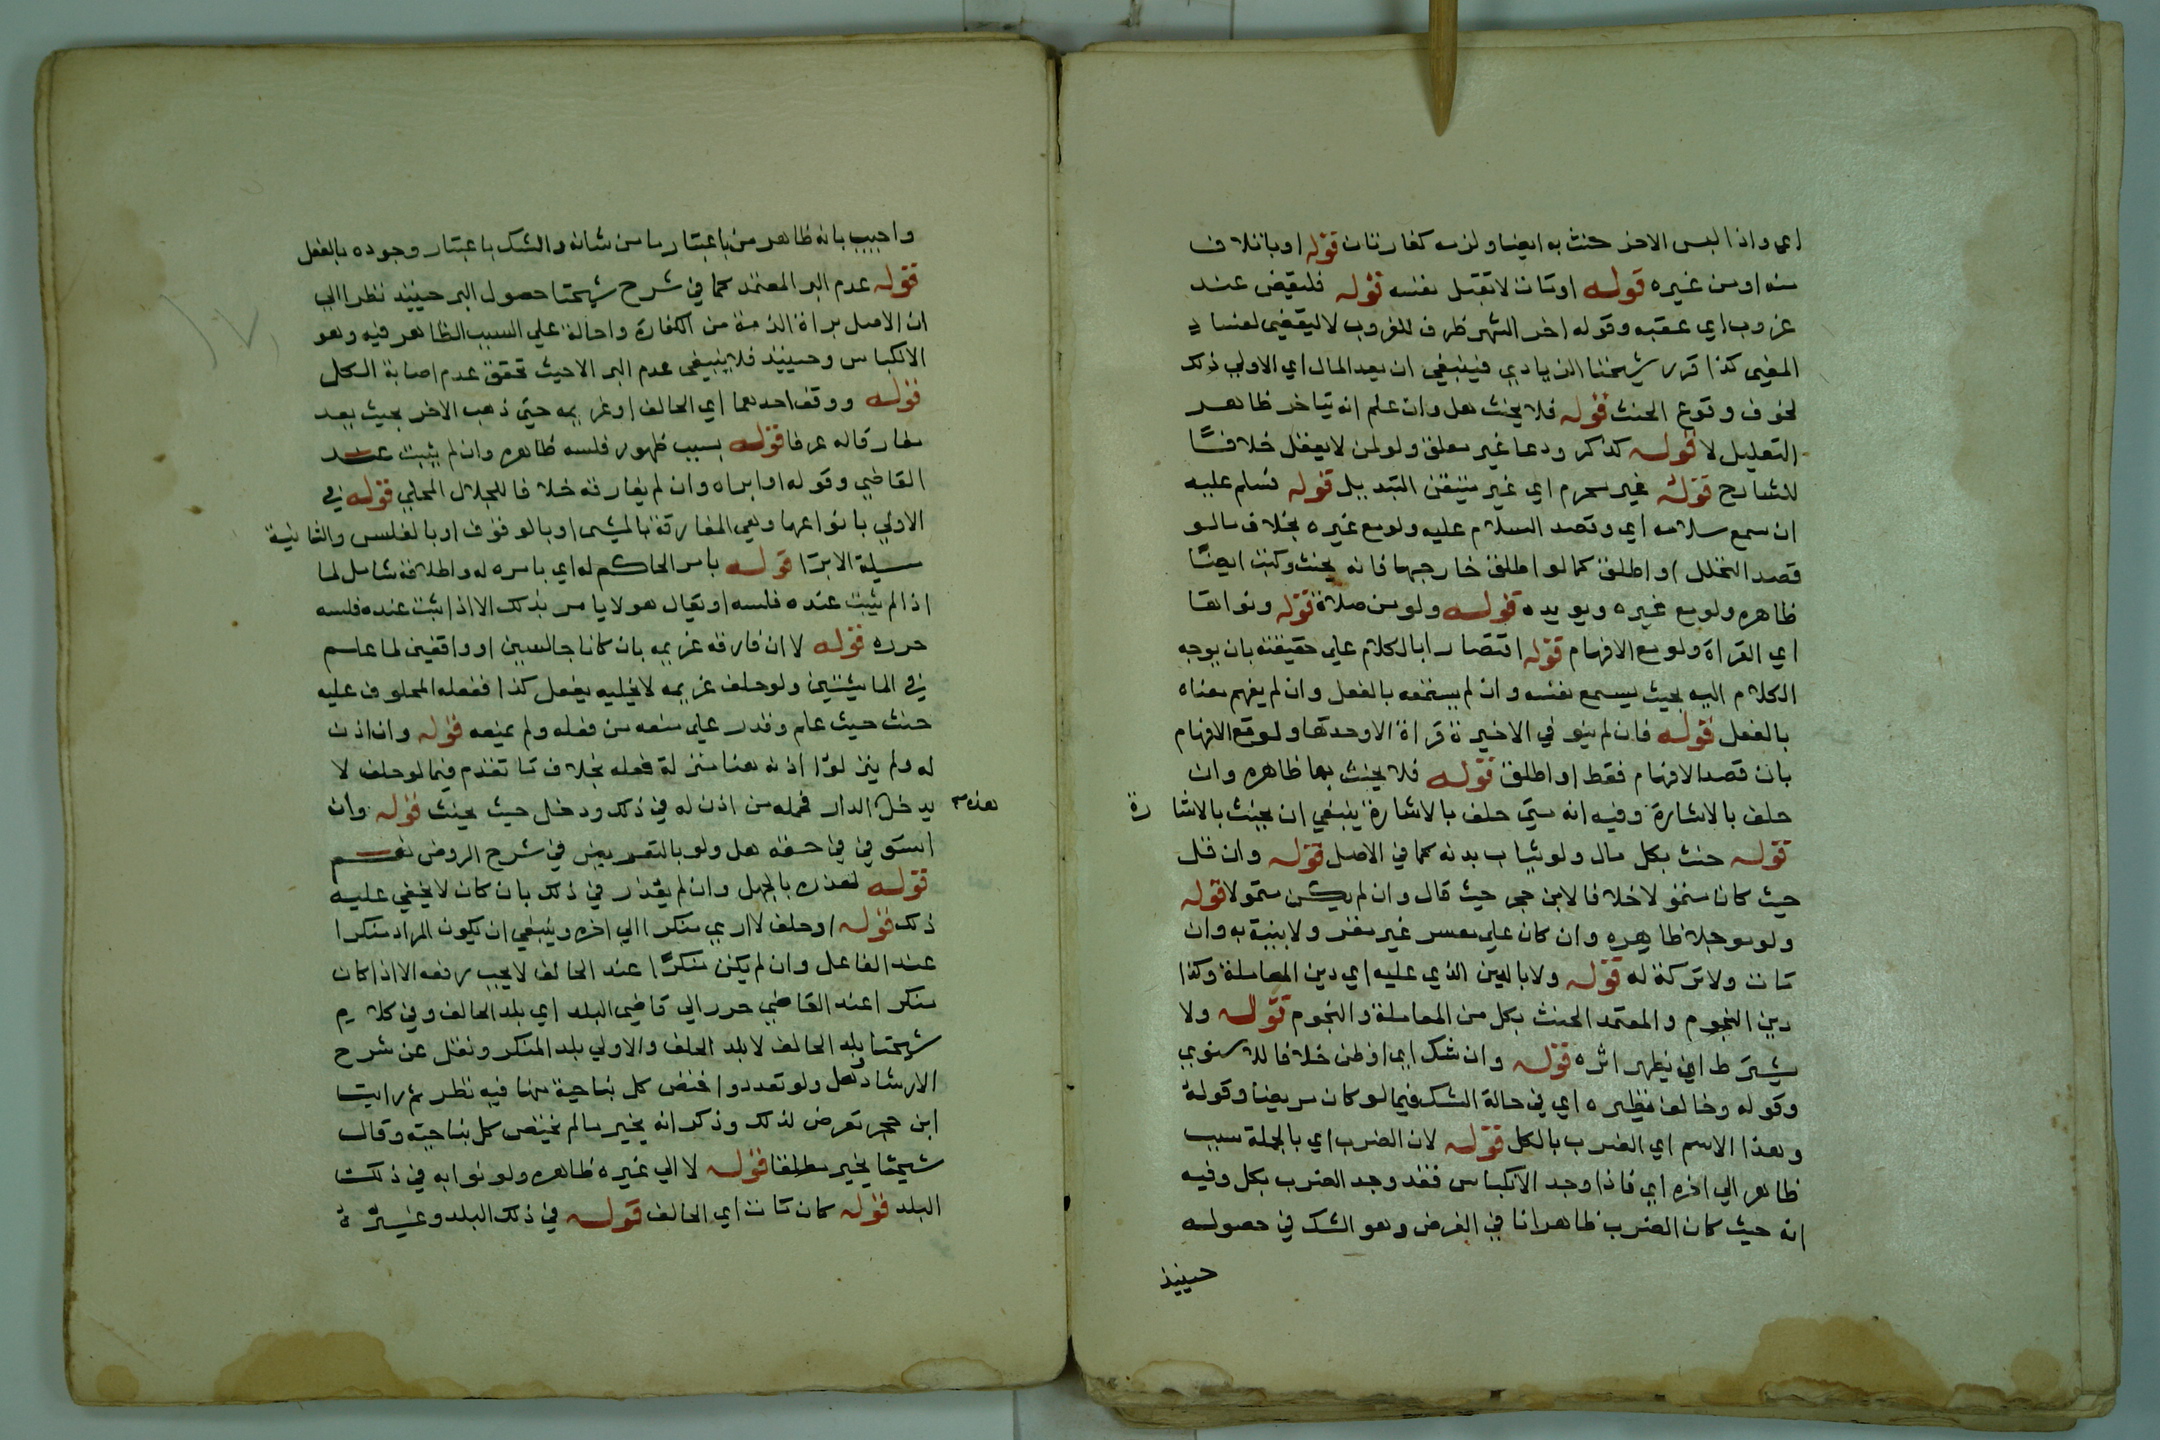 اي واذا لبس الاخر حنث به ايضا ولزمه كفارتان قوله او باتلاف
منه او من غيره قوله او مات لا بقتل نفسه قوله فليقض عند
غروب اي عقبه وقوله اخر الشهر ظرف للغروب لا ليقضي لفساد
المعنى كذا قرر شيخنا الزيادي فينبغي ان يعد المال اي الاولى ذلك
لخوف وقوع الحنث قوله فلا يحنث هل وان علم انه يتاخر ظاهر
التعليل لا قوله كذكر ودعا غير معلق ولو لمن لا يعقل خلافا
للشارح قوله غير محرم اي غير متيقن التبديل قوله فسلم عليه
ان سمع سلامه اي وقصد السلام عليه ولو مع غيره بخلاف ما لو
قصد التحلل او اطلق كما لو اطلق خارجها فانه يحنث وكتب ايضا
ظاهره ولو مع غيره ويويده قوله ولو من صلاة قوله ونواها
اي القراة ولو مع الافهام قوله اقتصارا بالكلام على حقيقته بان يوجه
الكلام اليه بحيث يسمع نفسه وان لم يسمعه بالفعل وان لم يفهم معناه
بالفعل قوله فان لم ينو في الاخيرة قراة الا وحدها ولو مع الافهام
بان قصد الافهام فقط او اطلق قوله فلا يحنث بها ظاهره وان
حلف بالاشارة وفيه انه متى حلف بالاشارة ينبغي ان يحنث بالاشارة
قوله حنث بكل مال ولو ثياب بدنه كما في الاصل قوله وان قل
حيث كان متمولا خلافا لابن حجر حيث قال وان لم يكن متمولا قوله
ولو موجلا ظاهره وان كان على معسر غير مقر ولا بينة به وان
مات ولا تركة له قوله ولا بالدين الذي عليه اي دين المعاملة وكذا
دين النجوم والمعتمد الحنث بكل من المعاملة والنجوم قوله ولا
يشترط اي يظهر اثره قوله وان شك اي او ظن خلافا للاسنوي
وقوله وخالف نظيره اي في حالة الشك فيما لو كان مريضا وقوله
وهذا الاسم اي الضرب بالكل قوله لان الضرب اي بالجملة سبب
ظاهر الى اخره اي فاذا وجد الانكباس فقد وجد الضرب بكل وفيه
انه حيث كان الضرب ظاهرا نافي الفرض وهو الشك في حصوله
حينيذ
واجيب بانه ظاهر من باعتبار ما من شانه والشك باعتبار وجوده بالفعل
قوله عدم البر المعتمد كما في شرح شيخنا حصول البر حينيذ نظرا الى
ان الاصل براة الذمة من الكفارة واحالة على السبب الظاهر فيه وهو
الانكباس وحينيذ فلا ينبغي عدم البر الا حيث تحقق عدم اصابة الكل
قوله ووقف احدهما اي الحالف او غريمه حتى ذهب الاخر بحيث يعد
مفارقا له عرفا قوله بسبب ظهور فلسه ظاهره وان لم يثبت عند
القاضي وقوله او ابراه وان لم يفارقه خلافا للجلال المحلي قوله في
الاولى بانواعها وهي المفارقة بالمشي او بالوقوف او بالفلس والثانية
مسيلة الابرا قوله بامر الحاكم له اي بامره له واطلاقه شامل لما
اذا لم يثبت عنده فلسه او يقال هو لا يامر بذلك الا اذا ثبت عنده فلسه
حرره قوله لا ان فارقه غريمه بان كانا جالسين او واقفين لما علم
في الماشيين ولو حلف غريمه لا يخليه يفعل كذا ففعله المحلوف عليه
حنث حيث علم وقدر على منعه من فعله ولم يمنعه قوله وان اذن
له ولم ينزلوا اذنه هنا منزلة فعله بخلاف ما تقدم فيما لو حلف لا
يدخل هذه الدار فحمله من اذن له في ذلك ودخل حيث يحنث قوله وان
استوفى في حقه هل ولو بالتعريض في شرح الروض نعم
قوله لعذره بالجهل وان لم يعذر في ذلك بان كان لا يخفى عليه
ذلك قوله او حلف لا ارى منكرا الى اخره وينبغي ان يكون المراد منكرا
عند الفاعل وان لم يكن منكرا عند الحالف لا يجب رفعه الا اذا كان
منكرا عند القاضي حرر الى قاضي البلد اي بلد الحالف وفي كلام
شيخنا بلد الحالف لا بلد الحلف والاولى بلد المنكر ونقل عن شرح
الارشاد وهل ولو تعددوا اختص كل بناحية منها فيه نظر ثم رايت
ابن حجر تعرض لذلك وذكر انه يخير ما لم يختص كل بناحيته وقال
شيخنا يخير مطلقا قوله لا الى غيره ظاهره ولو نوابه في ذلك
البلد قوله كان مات اي الحالف قوله في ذلك البلد وغيره